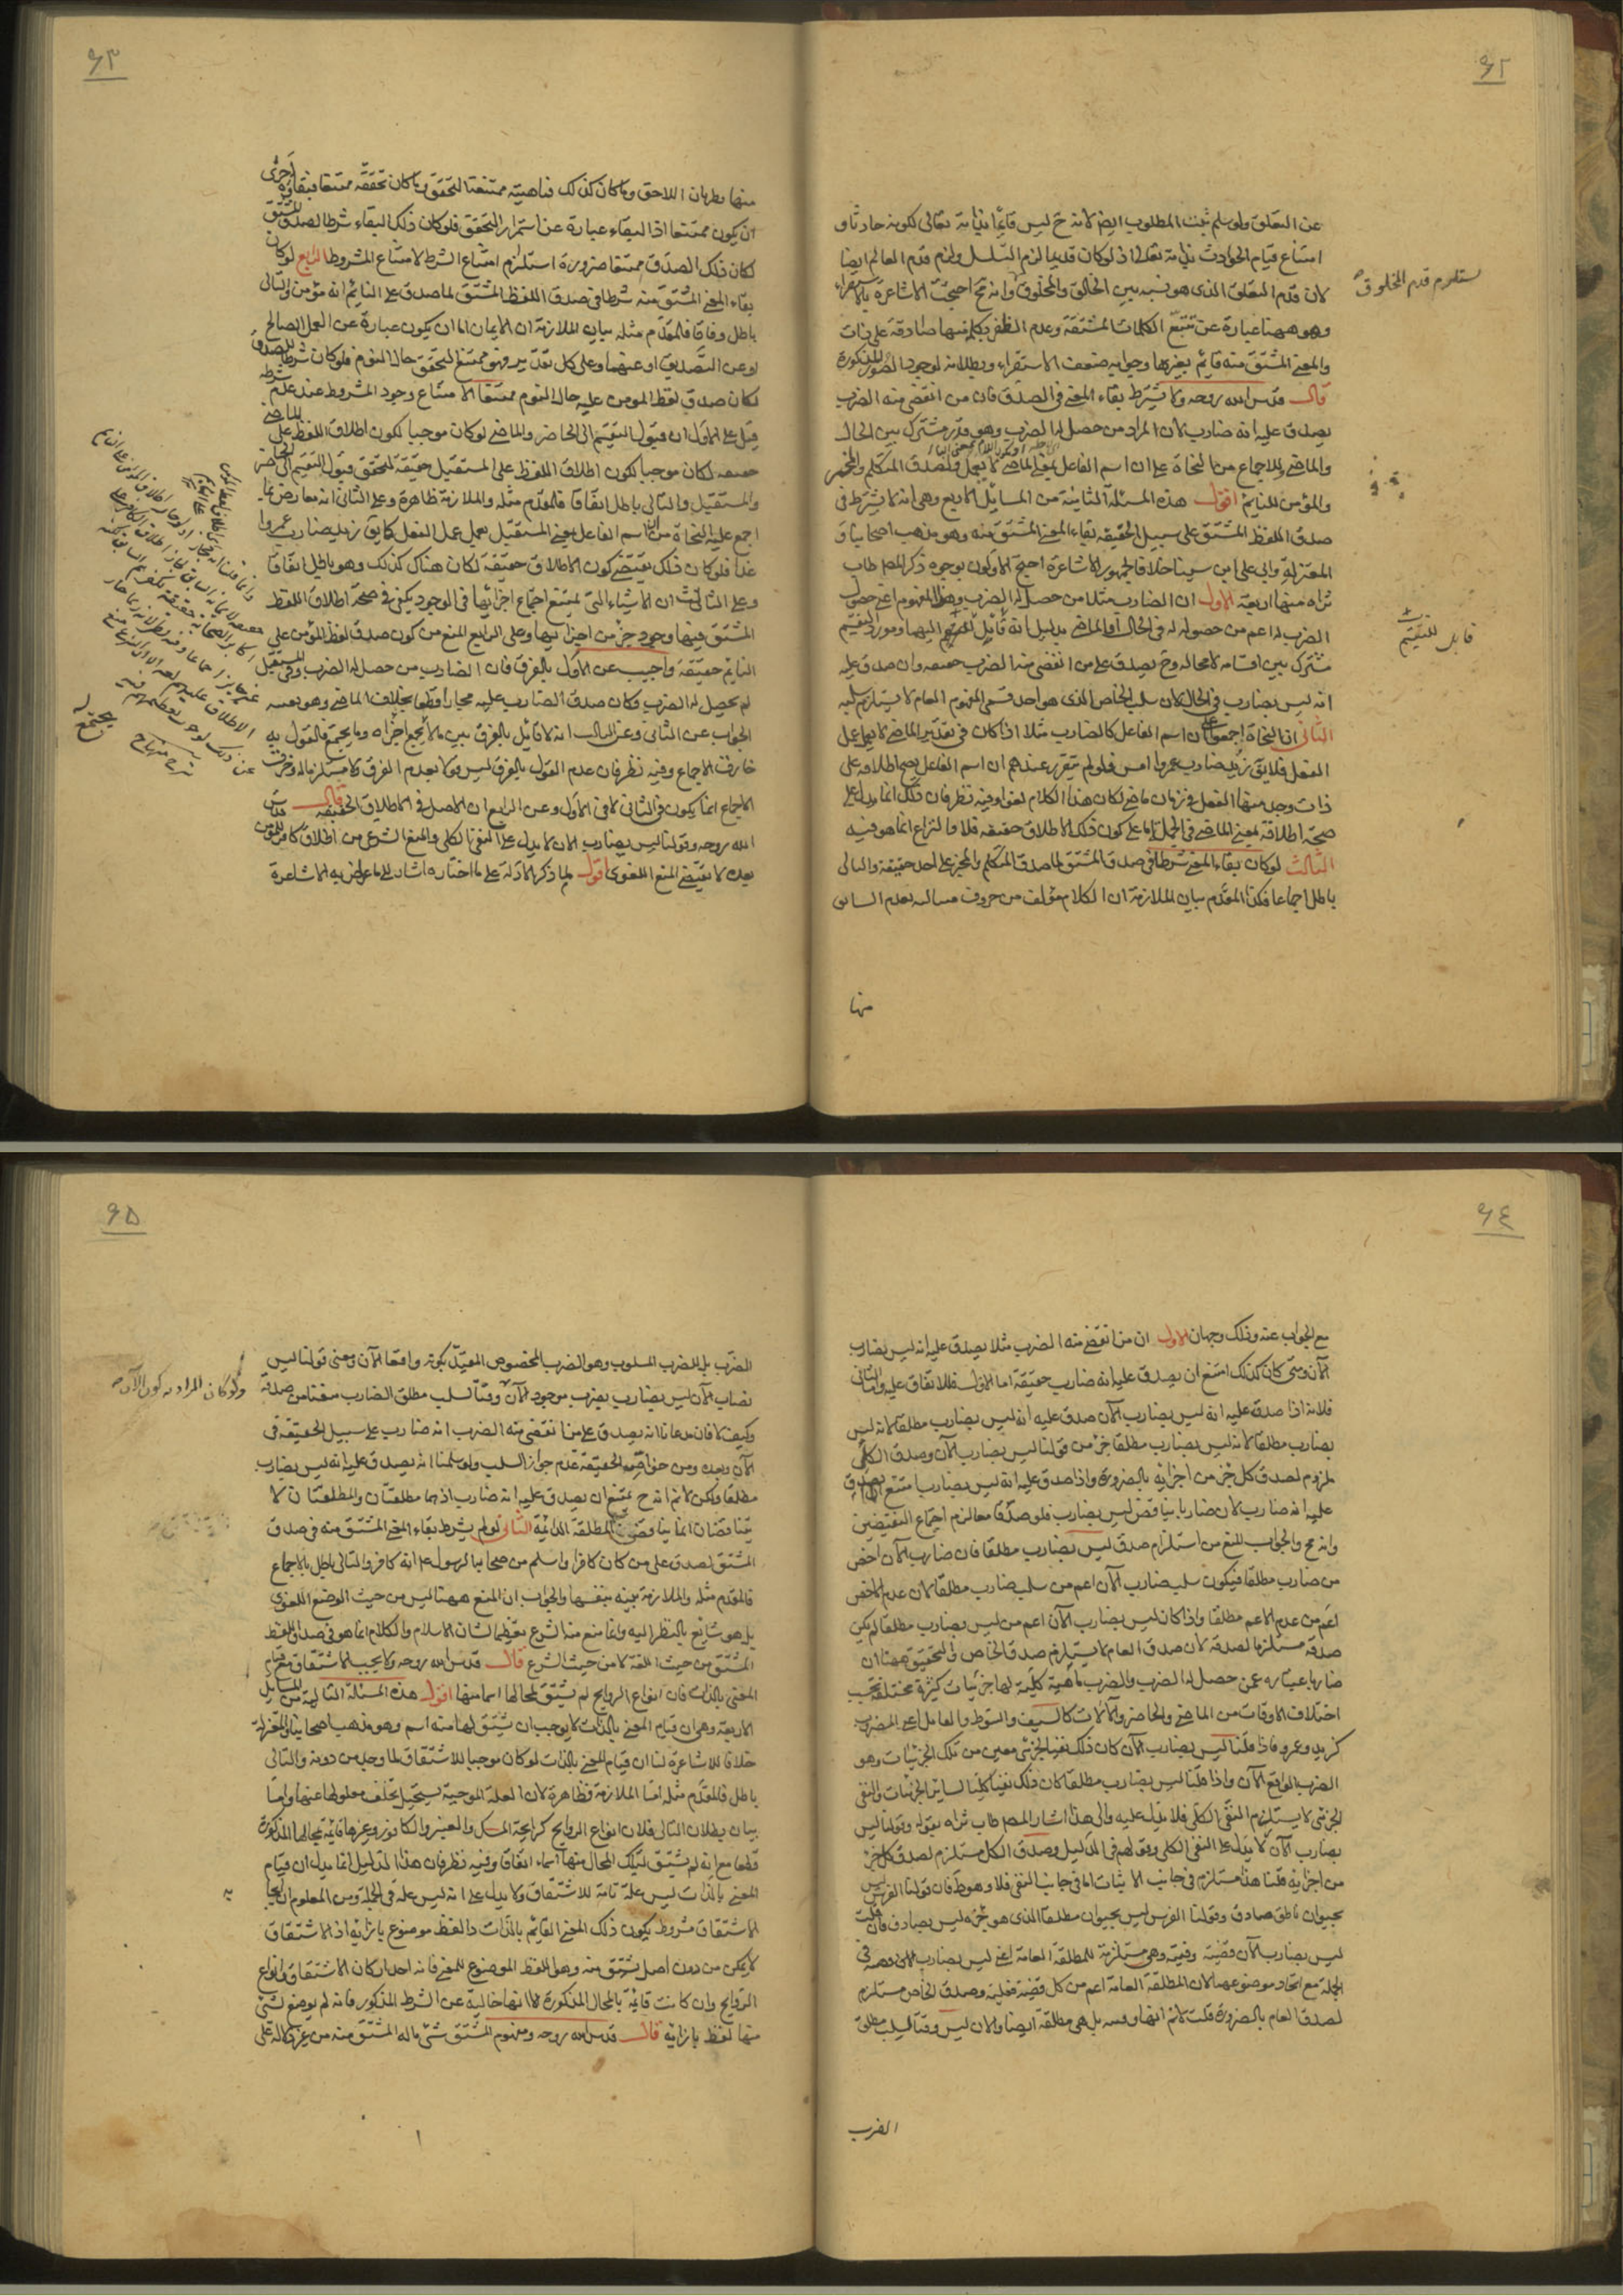 ٩٢
عن التعلق ولو سلم ثبت المطلوب ايضا لانه ح ليس قايما بذاته تعالى لكونه حادثا و
امتناع قيام الحوادث بذاته تعالى اذ لو كان قديما لزم التسلسل ولزم قدم العالم ايضا
لان قدم التعلق الذى هو نسبة بين الخالق والمخلوق وانه مح احتجت الاشاعرة بالاستقراء
وهو ههنا عبارة عن تتبع الكلمات المشتقة وعدم الظفر بكلمة منها صادقة على ذات
والمعنى المشتق منه قايم بغيرها وجوابه ضعف الاستقراء وبطلانه لوجود الصور المذكورة
قال قدس الله روحه ولا يشترط بقاء المعنى فى الصدق فان من انقضى منه الضرب
يصدق عليه انه ضارب لان المراد من حصل له الضرب وهو قدر مشترك بين الحال
والماضى وللاجماع من النحاة على ان اسم الفاعل بمعنى الماضى لا يعمل ولصدق المتكلم والمخبر
والمؤمن للنايم اقول هذه المسئلة الثانية من المسايل الاربع وهى انه لا يشترط فى
صدق اللفظ المشتق على سبيل الحقيقة بقاء المعنى المشتق منه وهو مذهب اصحابنا و
المعتزلة وابى على ابن سينا خلافا لجمهور الاشاعرة احتج الاولون بوجوه ذكر المص طاب
ثراه منها اربعة الاول ان الضارب مثلا من حصل له الضرب وهذا المفهوم اعنى حصول
الضرب له اعم من حصوله له فى الحال او الماضى بدليل انه قابل للتقسيم اليهما ومورد التقسيم
مشترك بين اقسامه لا محالة وح يصدق على من انقضى منه الضرب حقيقة وان صدق عليه
انه ليس بضارب فى الحال لان سلب الخاص الذى هو احد قسمى المفهوم العام لا يستلزم سلبه
الثانى ان النحاة اجمعوا على ان اسم الفاعل كالضارب مثلا اذا كان فى تقدير الماضى لا يعمل عمل
الفعل فلا يق زيد ضارب عمروا امس فلو لم يتقرر عندهم ان اسم الفاعل يصح اطلاقه على
ذات وجد منها الفعل فى زمان ماض لكان هذا الكلام لغوا وفيه نظر فان ذلك انما يدل على
صحة اطلاقه بمعنى الماضى فى الجملة اما على كون ذلك الاطلاق حقيقة فلا والنزاع انما هو فيه
الثالث لو كان بقاء المعنى شرطا فى صدق المشتق لما صدق المتكلم والمخبر على احد حقيقة والتالى
باطل اجماعا فكذا المقدم بيان الملازمة ان الكلام مؤلف من حروف متتالية يعدم السابق
منها
يستلزم قدم المخلوق
قابل للتقسيم
٩٣
منها بطريان اللاحق وما كان كذلك فماهيته ممتنعة التحقق وما كان تحققه ممتنعا فبقاؤه احرى
ان يكون ممتنعا اذ البقاء عبارة عن استمرار التحقق فلو كان ذلك البقاء شرطا لصدق المشتق
لكان ذلك الصدق ممتنعا ضرورة استلزام امتناع الشرط لامتناع المشروط الرابع لو كان
بقاء المعنى المشتق منه شرطا فى صدق اللفظ المشتق لما صدق على النايم انه مؤمن والتالى
باطل وفاقا فالمقدم مثله بيان الملازمة ان الايمان اما ان يكون عبارة عن العمل الصالح
او عن التصديق او عنهما وعلى كل تقدير فهو ممتنع التحقق حال النوم فلو كان شرطا للصدق
لكان صدق لفظ المومن عليه حال النوم ممتنعا لامتناع وجود المشروط عند عدم شرطه
قيل على الاول ان قبول التقسيم الى الحاضر والماضى لو كان موجبا لكون اطلاق اللفظ على الماضى
حقيقة لكان موجبا لكون اطلاق اللفظ على المستقبل حقيقة لتحقق قبول التقسيم الى الحاضر
والمستقبل والتالى باطل اتفاقا فالمقدم مثله والملازمة ظاهرة وعلى الثانى انه معارض بما
اجمع عليه النحاة من ان اسم الفاعل بمعنى المستقبل يعمل عمل الفعل كما يق زيد ضارب عمروا
غدا فلو كان ذلك يقتضى كون الاطلاق حقيقة لكان هناك كذلك وهو باطل اتفاقا
وعلى الثالث ان الاشياء التى يمتنع اجتماع اجزائها فى الوجود يكفى فى صحة اطلاق اللفظ
المشتق فيها وجود جزء من اجزائها وعلى الرابع المنع من كون صدق لفظ المؤمن على
النايم حقيقة واجيب عن الاول بالفرق فان الضارب من حصل له الضرب وفى المستقبل
لم يحصل له الضرب فكان صدق الضارب عليه مجازا قطعا بخلاف الماضى وهو بعينه
الجواب عن الثانى وعن الثالث انه لا قايل بالفرق بين ما لا يجتمع اجزاه وما يجتمع فالقول به
خارق للاجماع وفيه نظر فان عدم القول بالفرق ليس قولا بعدم الفرق ولا مستلزما له وخرق
الاجماع انما يكون فى الثانى لا فى الاول وعن الرابع ان الاصل فى الاطلاق الحقيقة قال قدس
الله روحه وقولنا ليس بضارب الان لا يدل على النفى الكلى والمنع الشرعى من اطلاق كافر للمؤمن
بعده لا يقتضى المنع اللغوى اقول لما ذكر الادلة على ما اختاره اشار الى ما عارض به الاشاعرة
٩٤
مع الجواب عنه وذلك وجهان الاول ان من انقضى منه الضرب مثلا يصدق عليه انه ليس بضارب
الآن ومتى كان كذلك امتنع ان يصدق عليه انه ضارب حقيقة اما الاول فللاتفاق عليه والثانى
فلانه اذا صدق عليه انه ليس بضارب الآن صدق عليه انه ليس بضارب مطلقا لانه ليس
بضارب مطلقا لانه ليس بضارب مطلقا جزء من قولنا ليس بضارب الآن وصدق الكل
ملزوم لصدق كل جزء من اجزائه بالضرورة واذا صدق عليه انه ليس بضارب امتنع ان يصدق
عليه انه ضارب لان ضاربا يناقض ليس بضارب فلو صدقا معا لزم اجتماع النقيضين
وانه مح والجواب المنع من استلزام صدق ليس بضارب مطلقا فان ضارب الآن اخص
من ضارب مطلقا فيكون سلب ضارب الآن اعم من سلب ضارب مطلقا لان عدم الاخص
اعم من عدم الاعم مطلقا واذا كان ليس بضارب الآن اعم من ليس بضارب مطلقا لم يكن
صدقه مستلزما لصدقه لان صدق العام لا يستلزم صدق الخاص والتحقيق ههنا ان
ضاربا عبارة عمن حصل له الضرب والضرب ماهية كلية لها جزئيات كثيرة مختلفة بحسب
اختلاف الاوقات من الماضى والحاضر والآلات كالسيف والسوط والعامل اعنى المضروب
كزيد وعمرو فاذا قلنا ليس بضارب الآن كان ذلك نفيا لجزئى معين من تلك الجزئيات وهو
الضرب الواقع الآن واذا قلنا ليس بضارب مطلقا كان ذلك نفيا كليا لساير الجزئيات والنفى
الجزئى لا يستلزم النفى الكلى فلا يدل عليه والى هذا اشار المص طاب ثراه بقوله وقولنا ليس
بضارب الآن لا يدل على النفى الكلى وقولهم فى الدليل وصدق الكل مستلزم لصدق كل جزء
من اجزائه قلنا هذا مستلزم فى جانب الاثبات اما فى جانب النفى فلا وهو ظ فان قولنا الفرس ليس
بحيوان ناطق صادق وقولنا الفرس ليس بحيوان مطلقا الذى هو جزءه ليس بصادق فان قلت
ليس بضارب الآن قضية وقتية وهى مستلزمة للمطلقة العامة اعنى ليس بضارب
الجملة مع اتحاد موضوعهما لان المطلقة العامة اعم من كل قضية فعلية وصدق الخاص مستلزم
لصدق العام بالضرورة قلت لا نم انها وقتية بل هى مطلقة ايضا والان ليس وقتا لسلب مطلق
الضرب
٩٥
الضرب بل للضرب المسلوب وهو الضرب المخصوص المقيد بكونه واقعا الآن ومعنى قولنا ليس
بضارب الآن ليس بضارب بضرب موجود الآن وقتا لسلب مطلق الضارب منعنا من صدقه
وكيف لا فان مدعانا انه يصدق على من انقضى منه الضرب انه ضارب على سبيل الحقيقة فى
الآن وبعده ومن خواص الحقيقة عدم جواز السلب ولو سلمنا انه يصدق عليه انه ليس بضارب
مطلقا ولكن لا نم انه ح يمتنع ان يصدق عليه انه ضارب اذ هما مطلقتان والمطلقتان لا
يتناقضان انما يناقض المطلقة الدائمة الثانى لو لم يشترط بقاء المعنى المشتق منه فى صدق
المشتق لصدق على من كان كافرا واسلم من صحابة الرسول عم انه كافر والتالى باطل بالاجماع
فالمقدم مثله والملازمة بينة بنفسها والجواب ان المنع ههنا ليس من حيث الوضع اللغوى
بل هو شايع بالنظر اليه وانما منع منه الشرع تعظيما لشان الاسلام والكلام انما هو فى صدق اللفظ
المشتق من حيث اللغة لا من حيث الشرع قال قدس الله روحه ولا يجب الاشتقاق مع قيام
المعنى بالذات فان انواع الروايح لم يشتق لمحالها اسما منها اقول هذه المسئلة الثالثة من المسايل
الاربعة وهى ان قيام المعنى بالذات لا يوجب ان يشتق لها منه اسم وهو مذهب اصحابنا والمعتزلة
خلافا للاشاعرة لنا ان قيام المعنى بالذات لو كان موجبا للاشتقاق لما وجد من دونه والتالى
باطل فالمقدم مثله اما الملازمة فظاهرة لان العلة الموجبة يستحيل تخلف معلولها عنها واما
بيان بطلان التالى فلان انواع الروايح كرايحة المسك والعنبر والكافور وغيرها قائمة بمحالها المذكورة
قطعا مع انه لم يشتق لتلك المحال منها اسماء اتفاقا وفيه نظر فان هذا الدليل انما يدل ان قيام
المعنى بالذات ليس علة تامة للاشتقاق ولا يدل على انه ليس علة فى الجملة ومن المعلوم ان ايجاب
الاشتقاق مشروط بكون ذلك المعنى القايم بالذات ذا لفظ موضوع بازائه اذ الاشتقاق
لا يمكن من دون اصل يشتق منه وهو اللفظ الموضوع للمعنى فانه احد اركان الاشتقاق وانواع
الروايح وان كانت قائمة بالمحال المذكورة الا انها خالية عن الشرط المذكور فانه لم يوضع لشئ
منها لفظ بازائه قال قدس الله روحه ومفهوم المشتق شئ ما له المشتق منه من غير دلالة على
ولو كان المراد به كون الآن